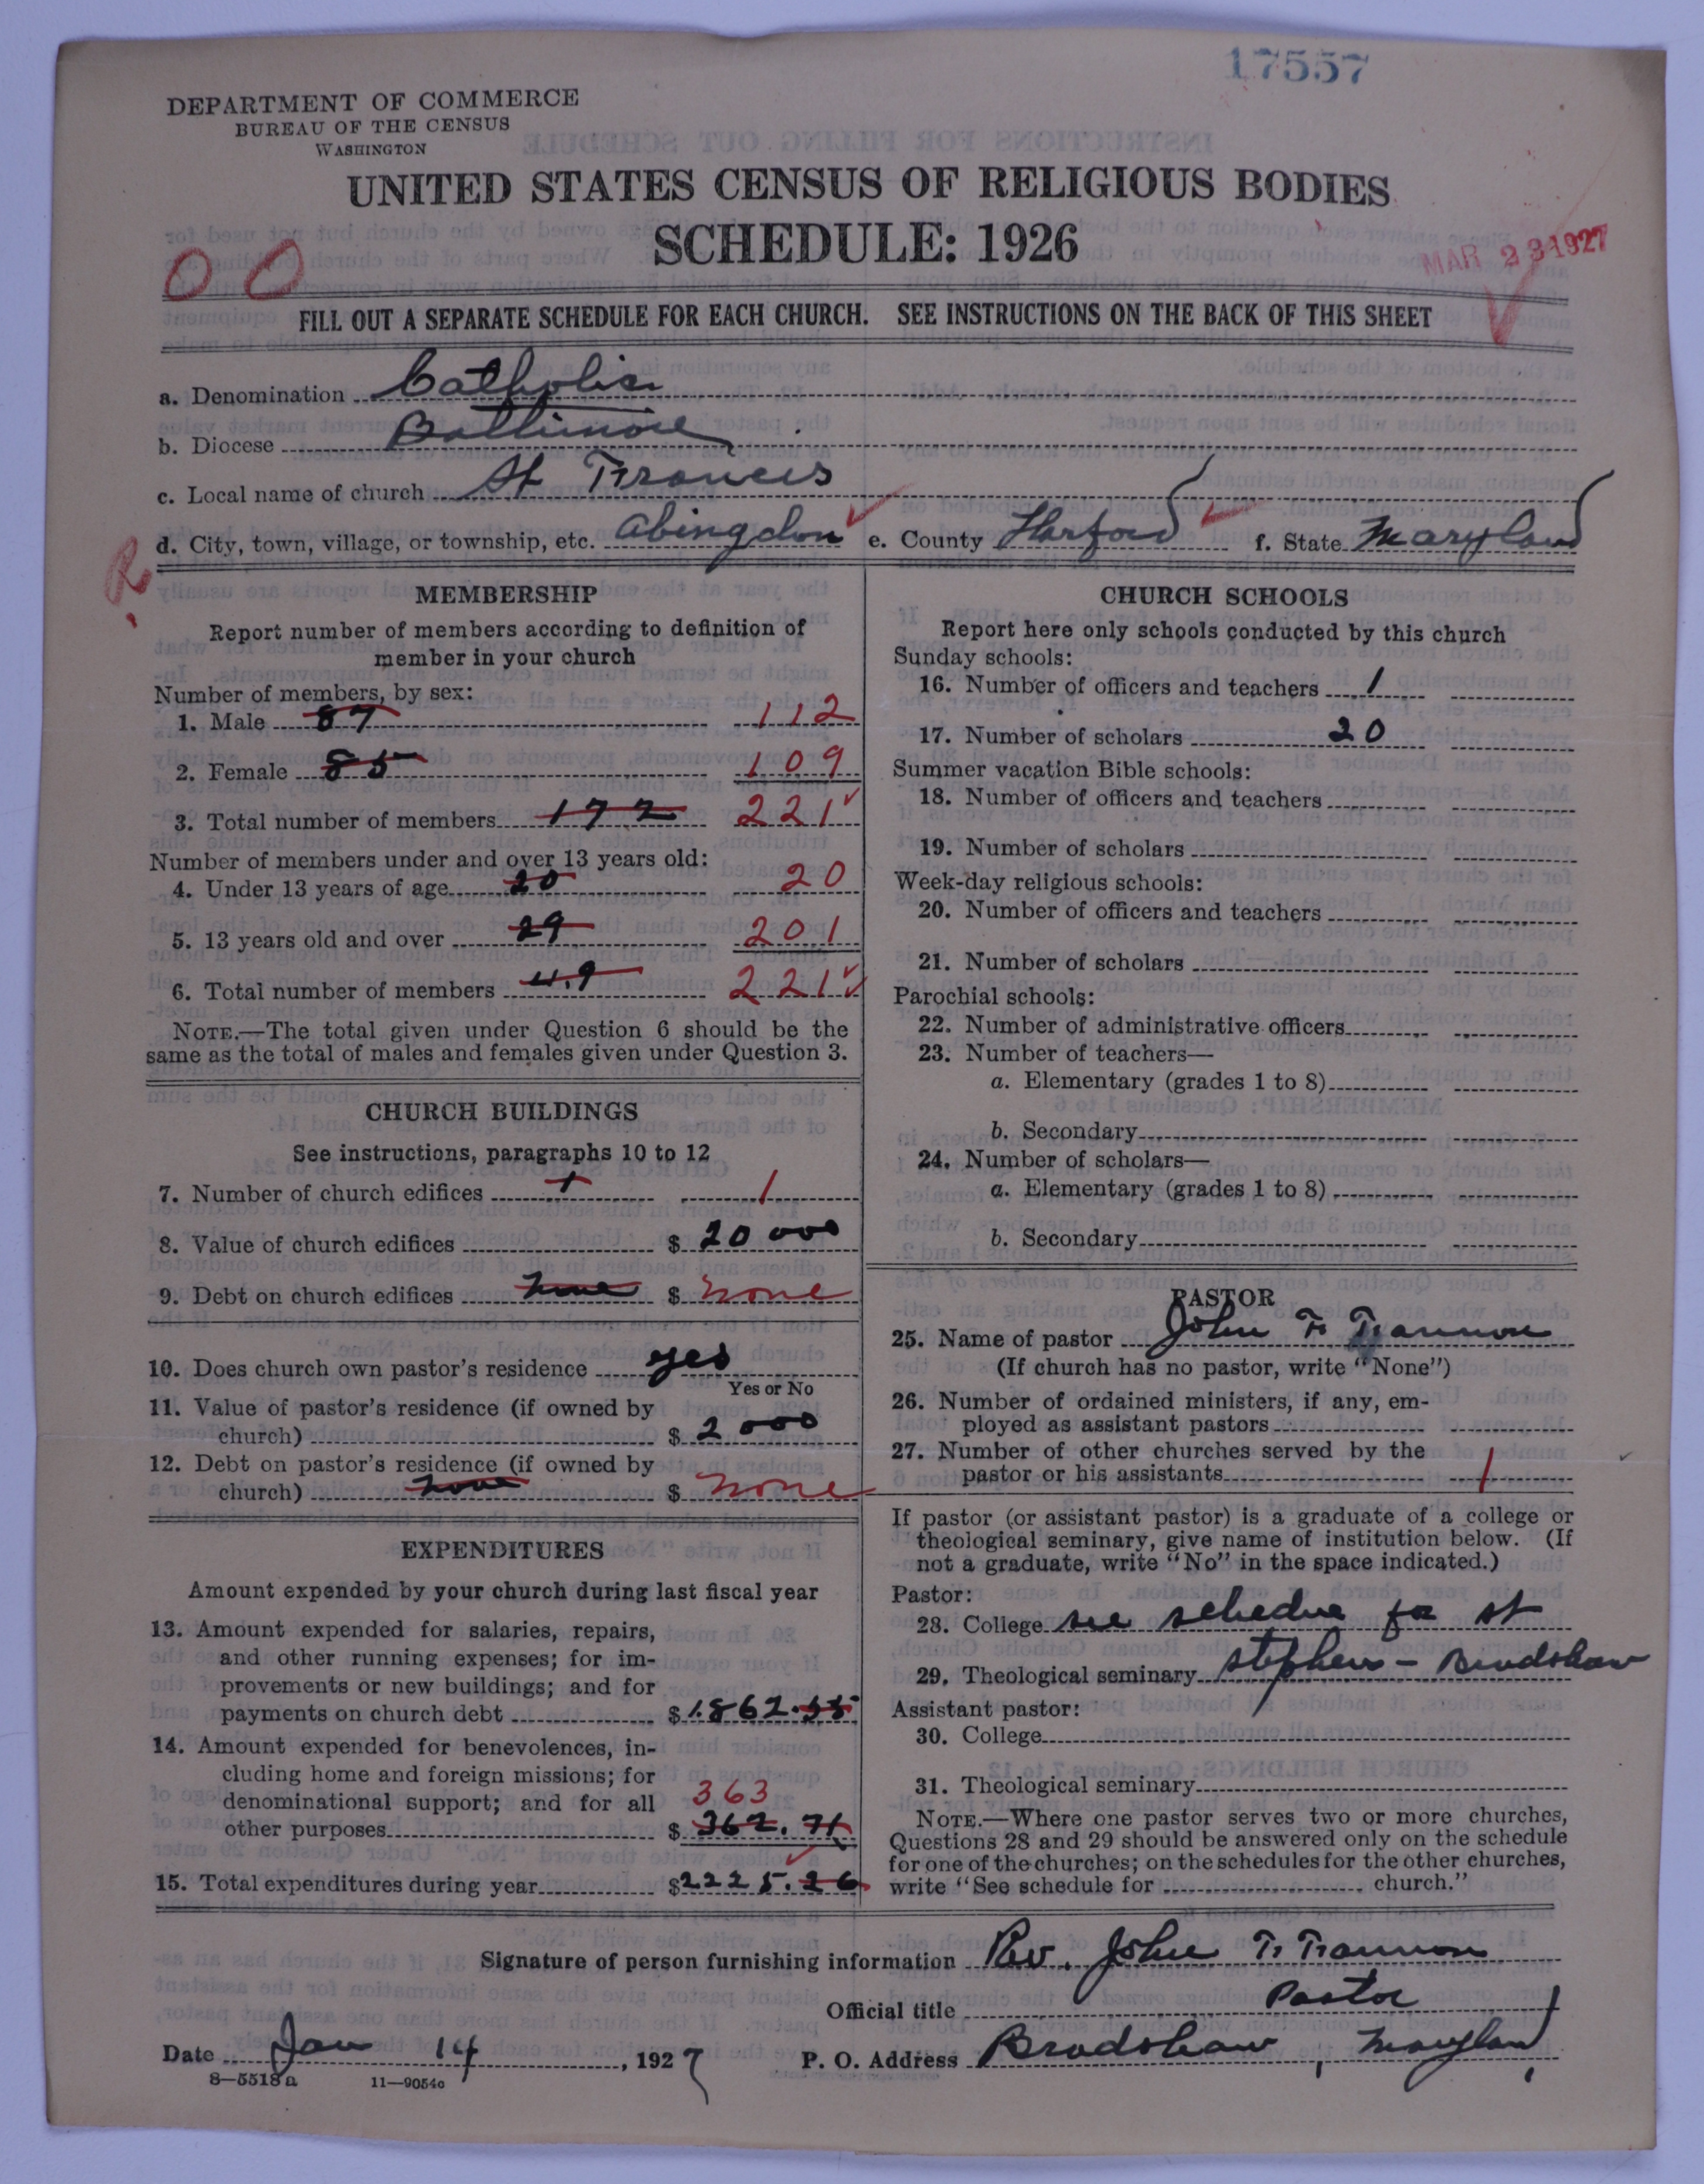 17557
DEPARTMENT OF COMMERCE
BUREAU OF THE CENSUS
WASHINGTON
UNITED STATES CENSUS OF RELIGIOUS BODIES
SCHEDULE: 1926
00
MAR 23 1927
FILL OUT A SEPARATE SCHEDULE FOR EACH CHURCH. SEE INSTRUCTIONS ON THE BACK OF THIS SHEET
a. Denomination Catholic
b. Diocese Baltimore
c. Local name of church St Francis
d. City, town, village, or township, etc. Abingdon e. County Harford f. State Maryland
R
MEMBERSHIP
Report number of members according to definition of
member in your church
Number of members, by sex:
1. Male 87 112
2. Female 85 109
3. Total number of members 172 221
Number of members under and over 13 years old:
4. Under 13 years of age 20 20
5. 13 years old and over 29 201
6. Total number of members 49 221
NOTE.—The total given under Question 6 should be the
same as the total of males and females given under Question 3.
CHURCH BUILDINGS
See instructions, paragraphs 10 to 12
7. Number of church edifices 1 1
8. Value of church edifices $ 20 000
9. Debt on church edifices none $ none
10. Does church own pastor's residence yes
Yes or No
11. Value of pastor's residence (if owned by
church) $ 2 000
12. Debt on pastor's residence (if owned by
church) none $ none
EXPENDITURES
Amount expended by your church during last fiscal year
13. Amount expended for salaries, repairs,
and other running expenses; for im-
provements or new buildings; and for
payments on church debt $ 1862.55
14. Amount expended for benevolences, in-
cluding home and foreign missions; for
denominational support; and for all 363
other purposes $ 362.71
15. Total expenditures during year $2225.26
CHURCH SCHOOLS
Report here only schools conducted by this church
Sunday schools:
16. Number of officers and teachers 1
17. Number of scholars 20
Summer vacation Bible schools:
18. Number of officers and teachers
19. Number of scholars
Week-day religious schools:
20. Number of officers and teachers
21. Number of scholars
Parochial schools:
22. Number of administrative officers
23. Number of teachers—
a. Elementary (grades 1 to 8)
b. Secondary
24. Number of scholars—
a. Elementary (grades 1 to 8)
b. Secondary
PASTOR
25. Name of pastor John F.
(If church has no pastor, write "None")
26. Number of ordained ministers, if any, em-
ployed as assistant pastors
27. Number of other churches served by the
pastor or his assistants 1
If pastor (or assistant pastor) is a graduate of a college or
theological seminary, give name of institution below. (If
not a graduate, write "No" in the space indicated.)
Pastor:
28. College see schedue for St
29. Theological seminary Stephens – Bradshaw
Assistant pastor:
30. College
31. Theological seminary
NOTE.—Where one pastor serves two or more churches,
Questions 28 and 29 should be answered only on the schedule
for one of the churches; on the schedules for the other churches,
write "See schedule for church."
Signature of person furnishing information Rev. John F.
Official title Pastor
Date Jan 14, 1927 P. O. Address Bradshaw, Maryland
8—5518a 11—9054c